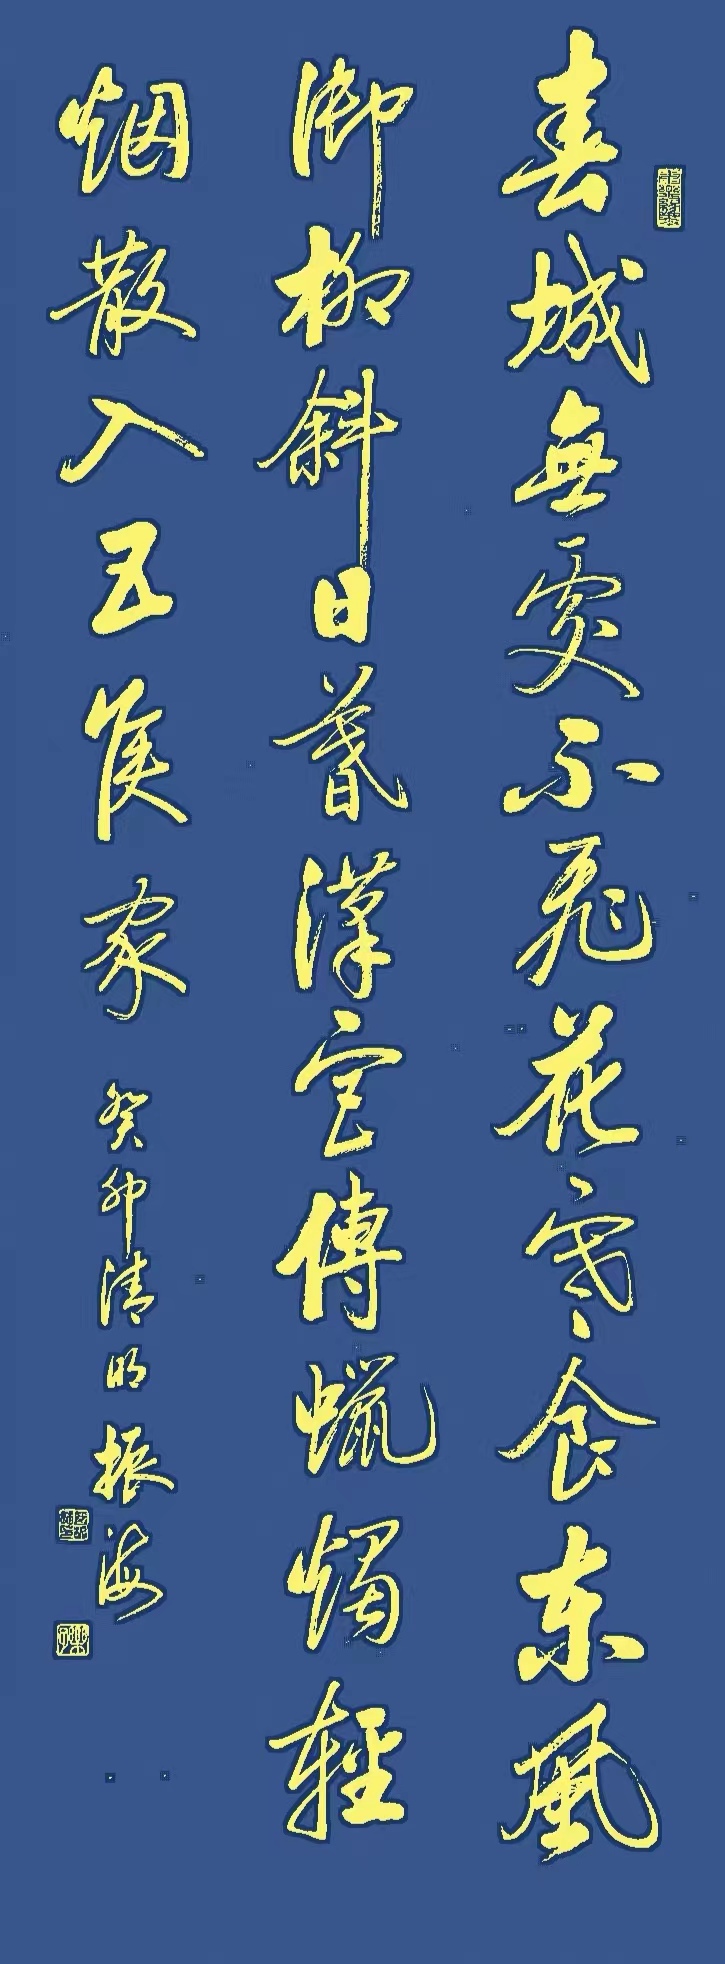 春城無處不飛花寒食东風
御柳斜日暮漢宫傳蠟燭輕
烟散入五侯家
癸卯清明振海